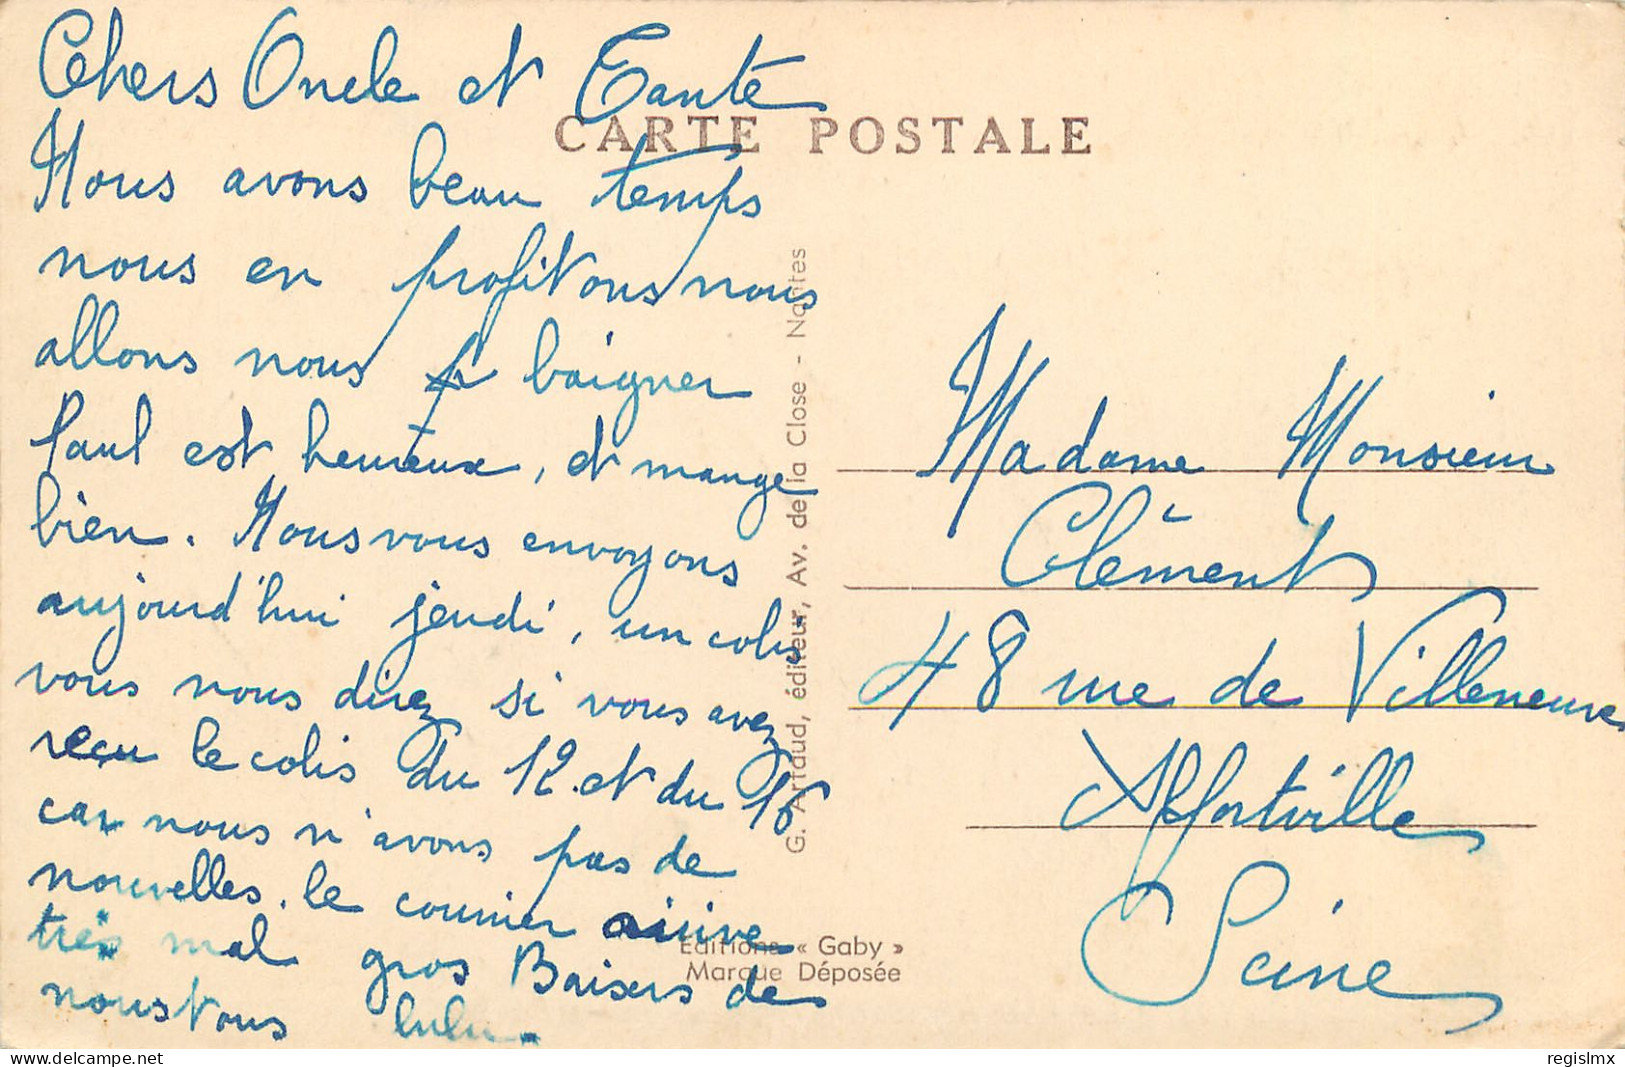 Chers Oncle et Tante
CARTE POSTALE
Nous avons beau temps
nous en profitons nous
allons nous baigner
Paul est heureux, et mange
bien. Nous vous envoyons
aujourd'hui jeudi, un colis
vous nous direz si vous avez
reçu le colis du 12. et du 16
car nous n'avons pas de
nouvelles. le courrier arrive
très mal gros Baisers de
nous tous lulu.
G. Artaud, éditeur, Av. de la Close - Nantes
Editions « Gaby »
Marque Déposée
Madame Monsieur
Clément
48 rue de Villeneuve
Alfortville
Seine
regislmx